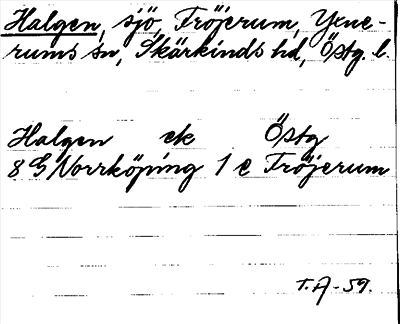 Halgen, sjö, Fröjerum, Yxne-
rums sn, Skärkinds hd, Östg. l.
Halgen ek Östg
8 G Norrköping 1 c Fröjerum
T.A-59.